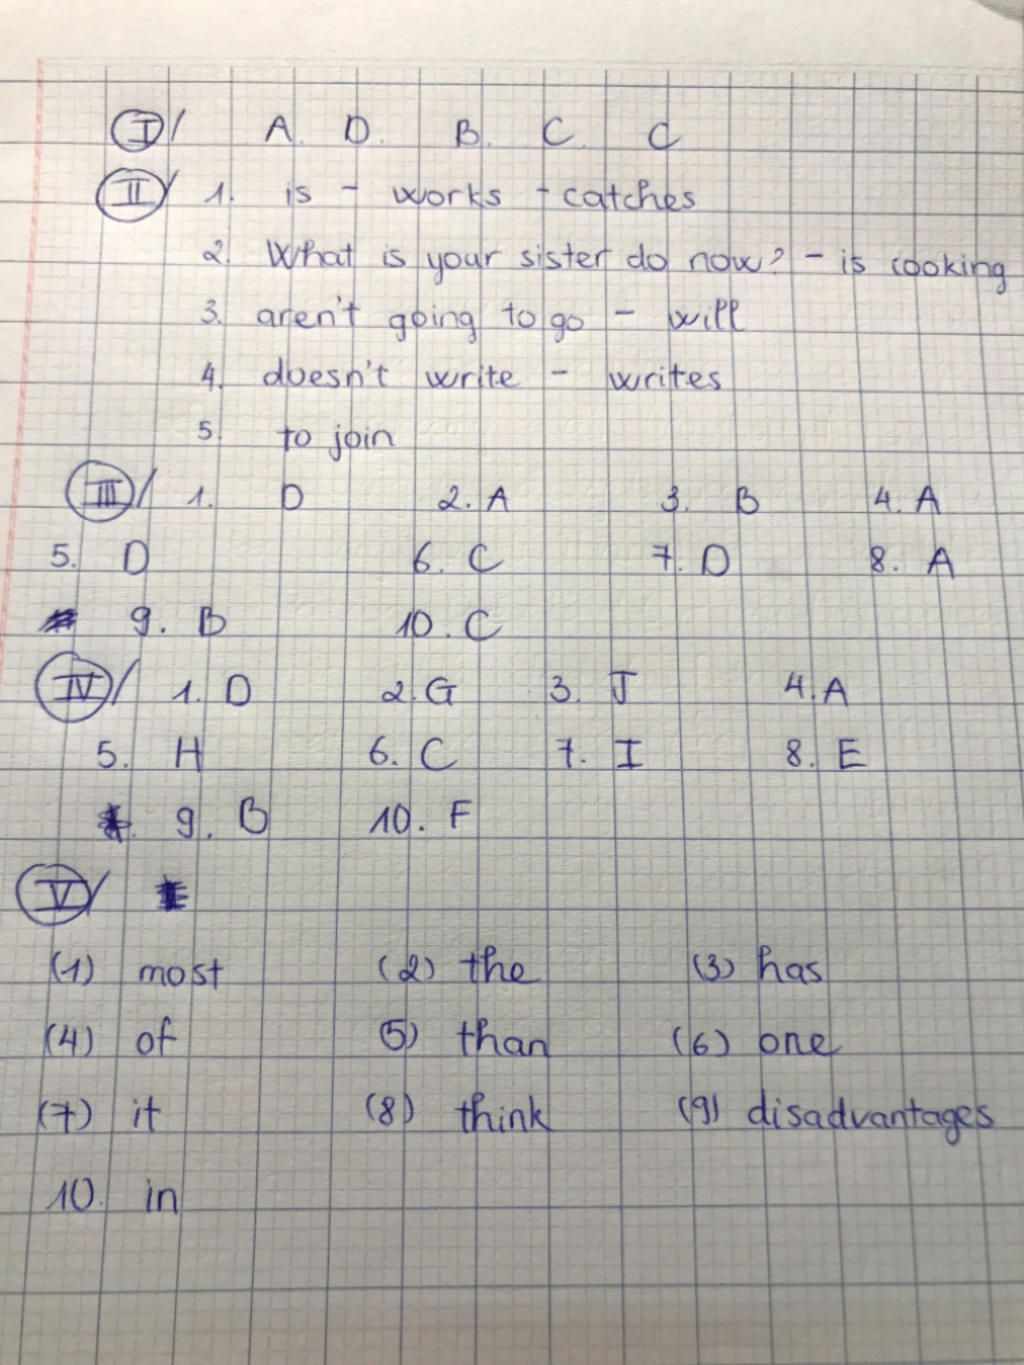 I/ A. D. B. C. C
II/ 1. is - works - catches
2. What is your sister do now? - is cooking
3. aren't going to go - will
4. doesn't write - writes
5. to join
III/ 1. D 2. A 3. B 4. A
5. D 6. C 7. D 8. A
9. B 10. C
IV/ 1. D 2. G 3. J 4. A
5. H 6. C 7. I 8. E
9. B 10. F
V/
(1) most (2) the (3) has
(4) of (5) than (6) one
(7) it (8) think (9) disadvantages
10. in